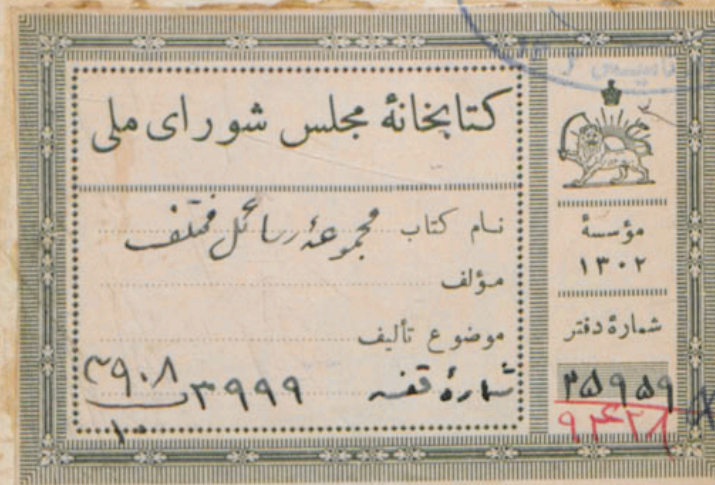 کتابخانهٔ مجلس شورای ملی
نام کتاب مجموعهٔ رسائل مختلف
مؤلف
موضوع تألیف
شمارهٔ قفسه ۳۹۹۹
۳۹۰۸
۱۰
مؤسسهٔ
۱۳۰۲
شمارهٔ دفتر
۳۵۹۵۹
۹۴۲۸